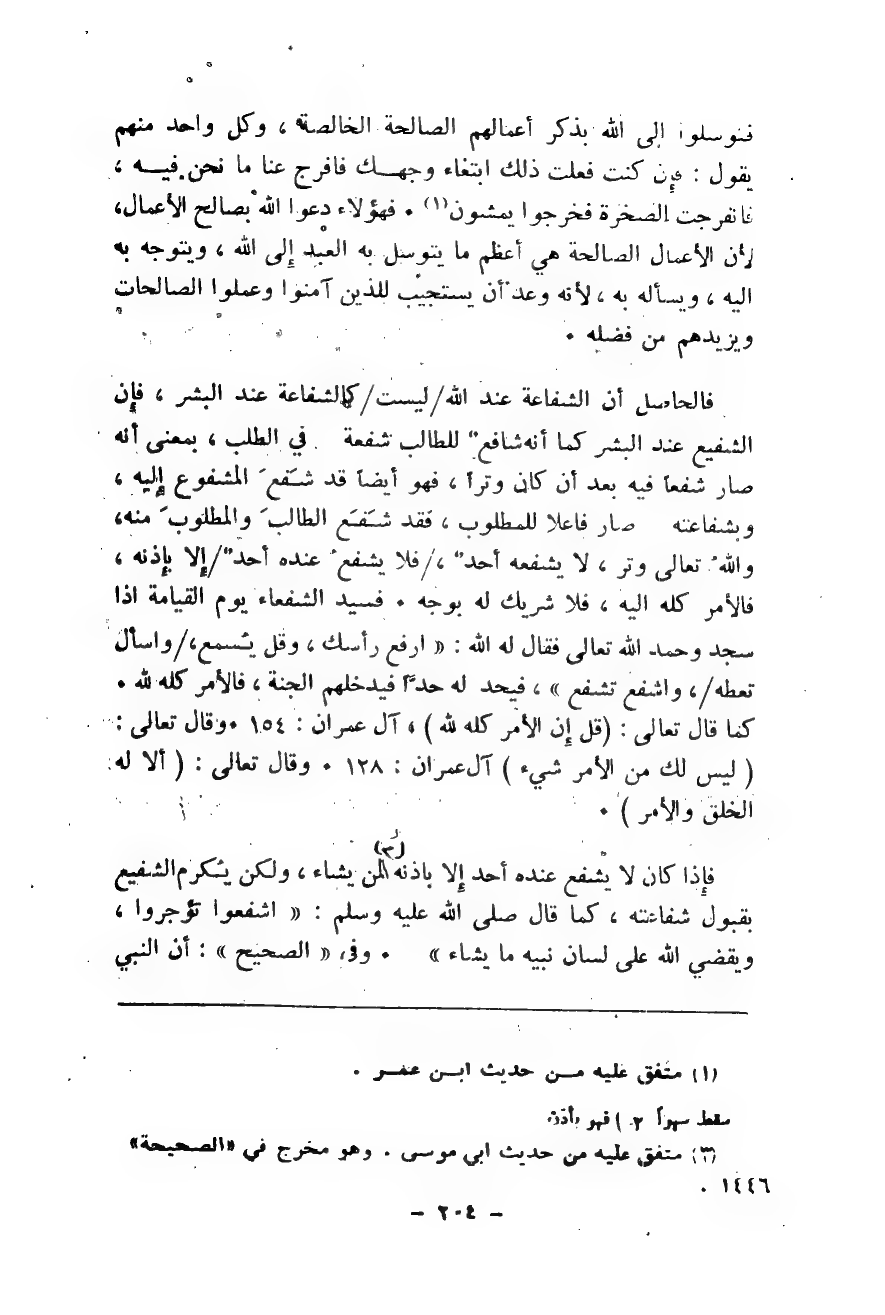 فتوسلوا إلى الله بذكر أعمالهم الصالحة الخالصة ، وكل واحد منهم
يقول : فإن كنت فعلت ذلك ابتغاء وجهك فافرج عنا ما نحن فيه ،
فانفرجت الصخرة فخرجوا يمشون (١) . فهؤلاء دعوا الله بصالح الأعمال،
لأن الأعمال الصالحة هي أعظم ما يتوسل به العبد إلى الله ، ويتوجه به
اليه ، ويسأله به ، لأنه وعد أن يستجيب للذين آمنوا وعملوا الصالحات
ويزيدهم من فضله .
فالحاصل أن الشفاعة عند الله/ليست/كالشفاعة عند البشر ، فإن
الشفيع عند البشر كما أنه شافعٌ للطالب شفعة في الطلب ، بمعنى أنه
صار شفعاً فيه بعد أن كان وتراً ، فهو أيضاً قد شَفَعَ المشفوع إليه ،
وبشفاعته صار فاعلا للمطلوب ، فقد شَفَعَ الطالبَ والمطلوبَ منه،
واللهُ تعالى وتر ، لا يشفعه أحدٌ ،/فلا يشفعُ عنده أحدٌ/إلا بإذنه ،
فالأمر كله اليه ، فلا شريك له بوجه . فسيد الشفعاء يوم القيامة اذا
سجد وحمد الله تعالى فقال له الله : « ارفع رأسك ، وقل يُسمع،/واسأل
تعطه/، واشفع تشفع » ، فيحد له حدّاً فيدخلهم الجنة ، فالأمر كله لله .
كما قال تعالى : (قل إن الأمر كله لله ) ، آل عمران : ١٥٤ .وقال تعالى :
( ليس لك من الأمر شيء ) آل عمران : ١٢٨ . وقال تعالى : ( ألا له
الخلق والأمر ) .
(٣)
فإذا كان لا يشفع عنده أحد إلا باذنه لمن يشاء ، ولكن يُكرم الشفيع
بقبول شفاعته ، كما قال صلى الله عليه وسلم : « اشفعوا تؤجروا ،
ويقضي الله على لسان نبيه ما يشاء » . وفي « الصحيح » : أن النبي
(١) متفق عليه من حديث ابن عمر .
سقط سهواً ٢. ) فهو بأذن
(٣) متفق عليه من حديث ابي موسى . وهو مخرج في «الصحيحة»
١٤٤٦ .
– ٢٠٤ –